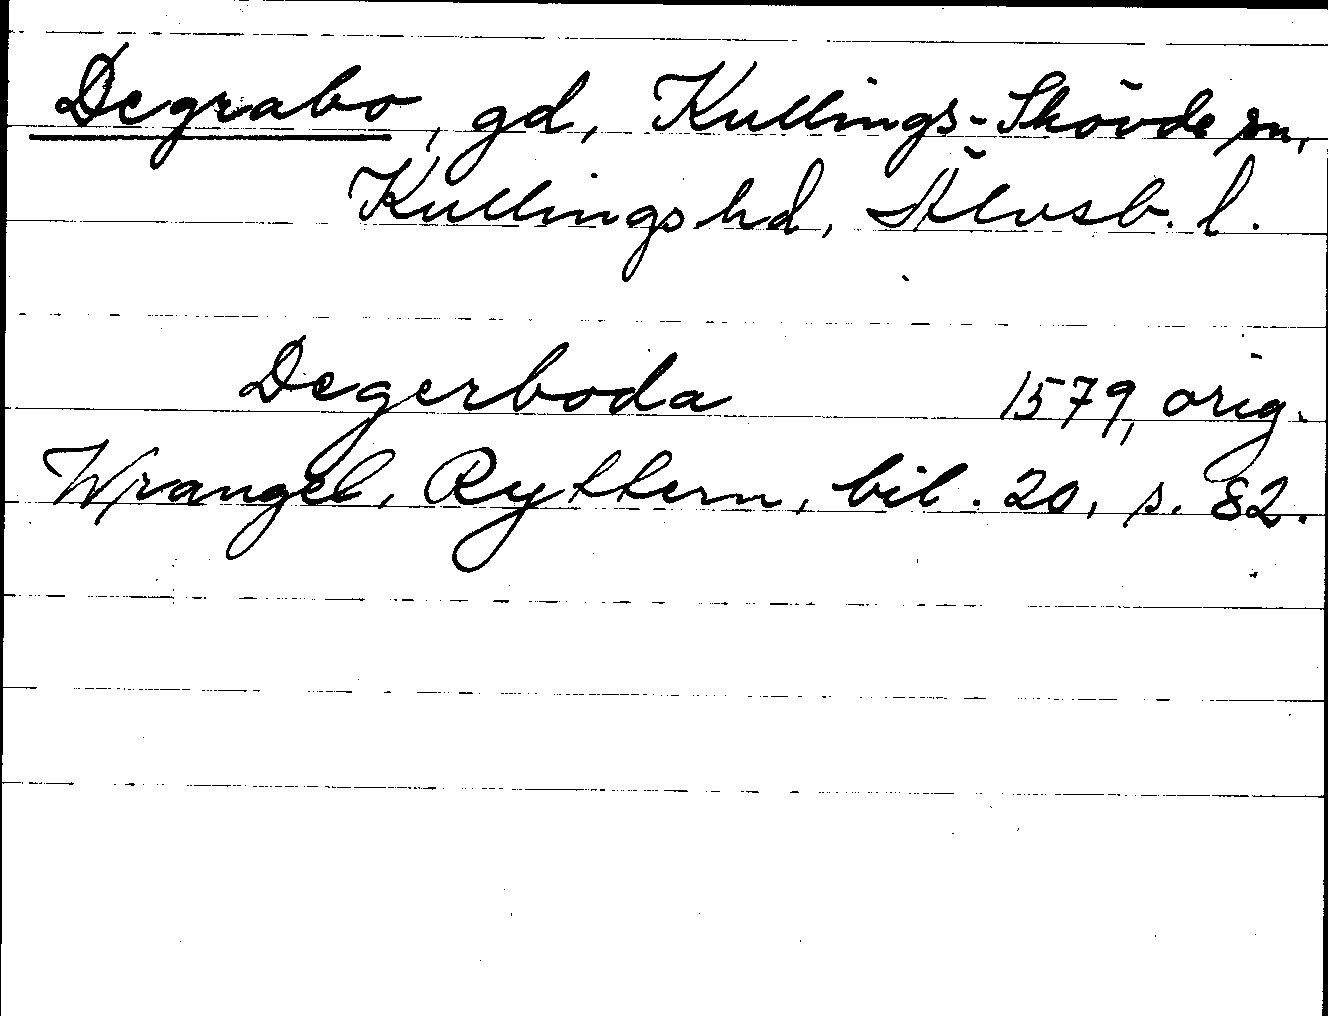 Degrabo, gd, Kullings-Skövde sn,
Kullings hd, Älvsb. l.
Degerboda 1579, orig.
Wrangel, Ryttern, bil. 20, s. 82.